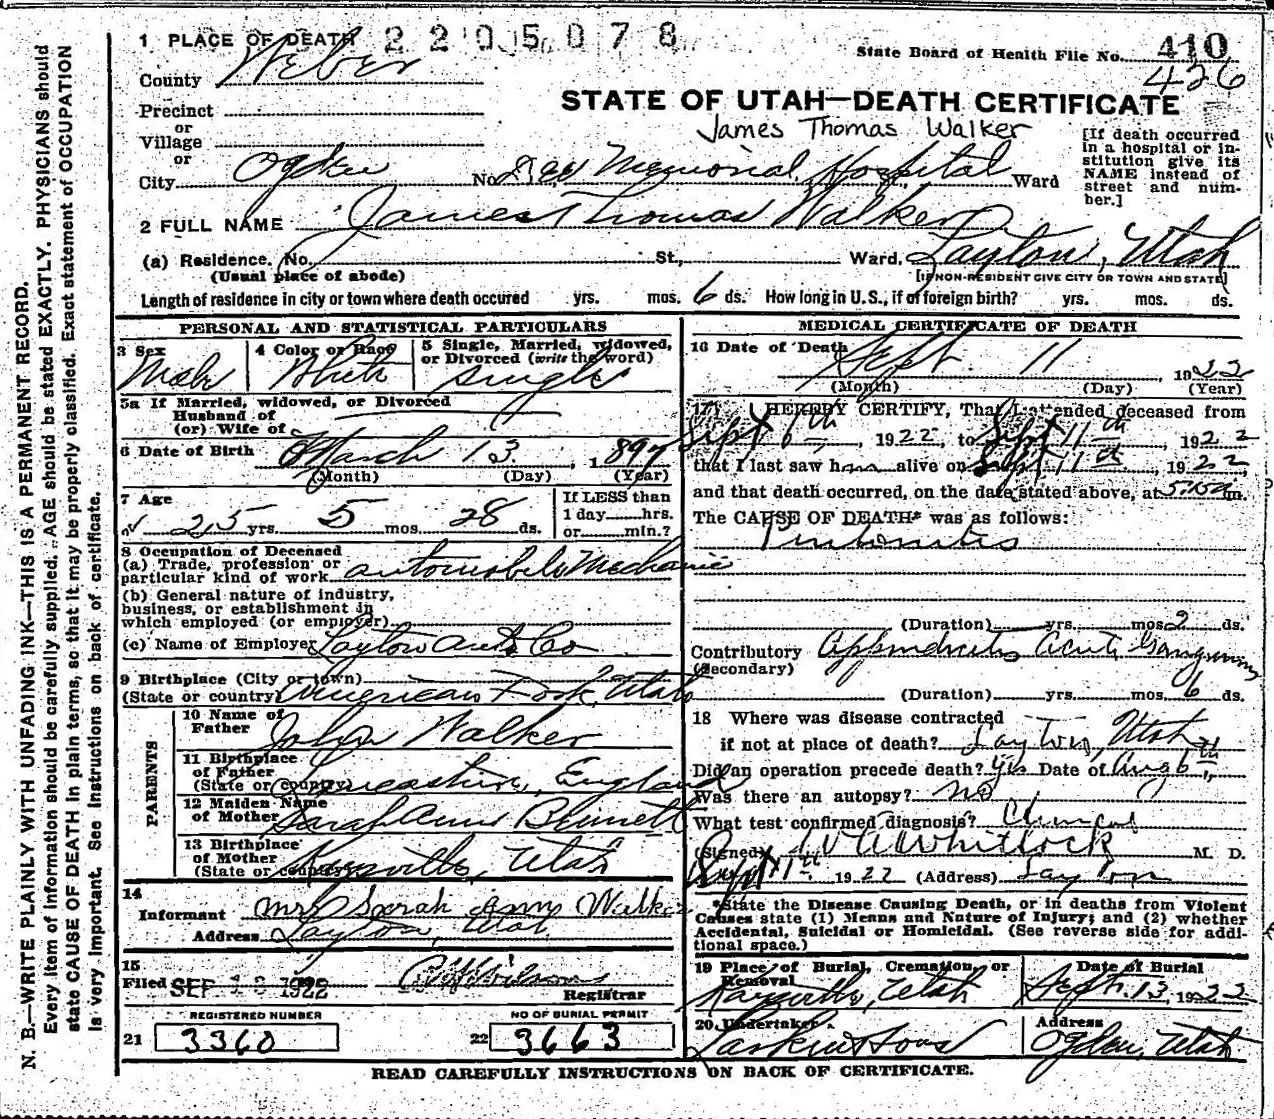 1 PLACE OF DEATH 2205078
State Board of Health File No. 410
County Weber
426
Precinct
STATE OF UTAH—DEATH CERTIFICATE
or
Village
James Thomas Walker
or
City Ogden No. Dee Memorial Hospital Ward
[If death occurred in a hospital or institution give its NAME instead of street and number.]
2 FULL NAME James Thomas Walker
(a) Residence. No. St., Ward. Layton, Utah
(Usual place of abode) [IF NON-RESIDENT GIVE CITY OR TOWN AND STATE]
Length of residence in city or town where death occured yrs. mos. 6 ds. How long in U.S., if of foreign birth? yrs. mos. ds.
PERSONAL AND STATISTICAL PARTICULARS
3 Sex Male
4 Color or Race White
5 Single, Married, widowed, or Divorced (write the word) Single
5a If Married, widowed, or Divorced
Husband of
(or) Wife of
6 Date of Birth March 13, 1897
(Month) (Day) (Year)
7 Age
25 yrs. 5 mos. 28 ds.
If LESS than
1 day hrs.
or min.?
8 Occupation of Deceased
(a) Trade, profession or
particular kind of work automobile Mechanic
(b) General nature of industry,
business, or establishment in
which employed (or employer)
(c) Name of Employer Layton Auto Co
9 Birthplace (City or town)
(State or country) American Fork, Utah
PARENTS
10 Name of
Father John Walker
11 Birthplace
of Father
(State or country) Lancashire, England
12 Maiden Name
of Mother Sarah Ann Bennett
13 Birthplace
of Mother
(State or country) Kaysville, Utah
14
Informant Mrs Sarah Ann Walker
Address Layton, Utah
15
Filed SEP 13 1922
Registrar
REGISTERED NUMBER NO OF BURIAL PERMIT
21 3360 22 3663
MEDICAL CERTIFICATE OF DEATH
16 Date of Death Sept 11 1922
(Month) (Day) (Year)
17 I HEREBY CERTIFY, That I attended deceased from
Sept 6th, 1922, to Sept 11th, 1922
that I last saw him alive on Sept 11th, 1922,
and that death occurred, on the date stated above, at m.
The CAUSE OF DEATH* was as follows:
Peritonitis
(Duration) yrs. mos. 2 ds.
Contributory Appendicitis acute gangrenous
(Secondary)
(Duration) yrs. mos. 6 ds.
18 Where was disease contracted
if not at place of death? Layton, Utah
Did an operation precede death? yes Date of Aug 6th
Was there an autopsy? No
What test confirmed diagnosis? Clinical
(Signed) Whitlock M. D.
Sept 11th 1922 (Address) Layton
*State the Disease Causing Death, or in deaths from Violent
Causes state (1) Means and Nature of Injury; and (2) whether
Accidental, Suicidal or Homicidal. (See reverse side for addi-
tional space.)
19 Place of Burial, Cremation, or Date of Burial
Removal
Kaysville, Utah Sept. 13, 1922
20 Undertaker Address
Larkin & Sons Ogden, Utah
READ CAREFULLY INSTRUCTIONS ON BACK OF CERTIFICATE.
N. B.—WRITE PLAINLY WITH UNFADING INK—THIS IS A PERMANENT RECORD.
Every item of information should be carefully supplied. AGE should be stated EXACTLY. PHYSICIANS should
state CAUSE OF DEATH in plain terms, so that it may be properly classified. Exact statement of OCCUPATION
is very important. See instructions on back of certificate.